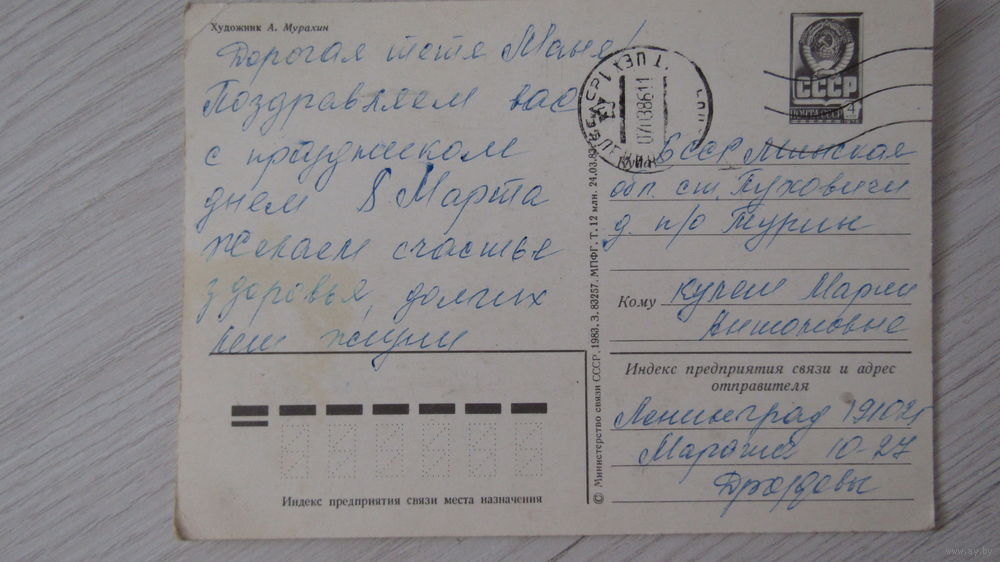 Художник А. Мурахин
Дорогая тетя Маня!
Поздравляем вас
с праздником
днем 8 Марта
Желаем счастье
здоровья, долгих
лет жизни
Индекс предприятия связи места назначения
© Министерство связи СССР. 1983. З. 83257. МПФГ. Т. 12 млн. 24.03.83
СССР
ПОЧТА СССР 4
070386 11
Куда
БССР Минская
обл. ст. Пуховичи
д. п/о Турин
Кому
Купей Марии
Индекс предприятия связи и адрес
отправителя
Ленинград 191025
Марата 10-27
www.ay.by